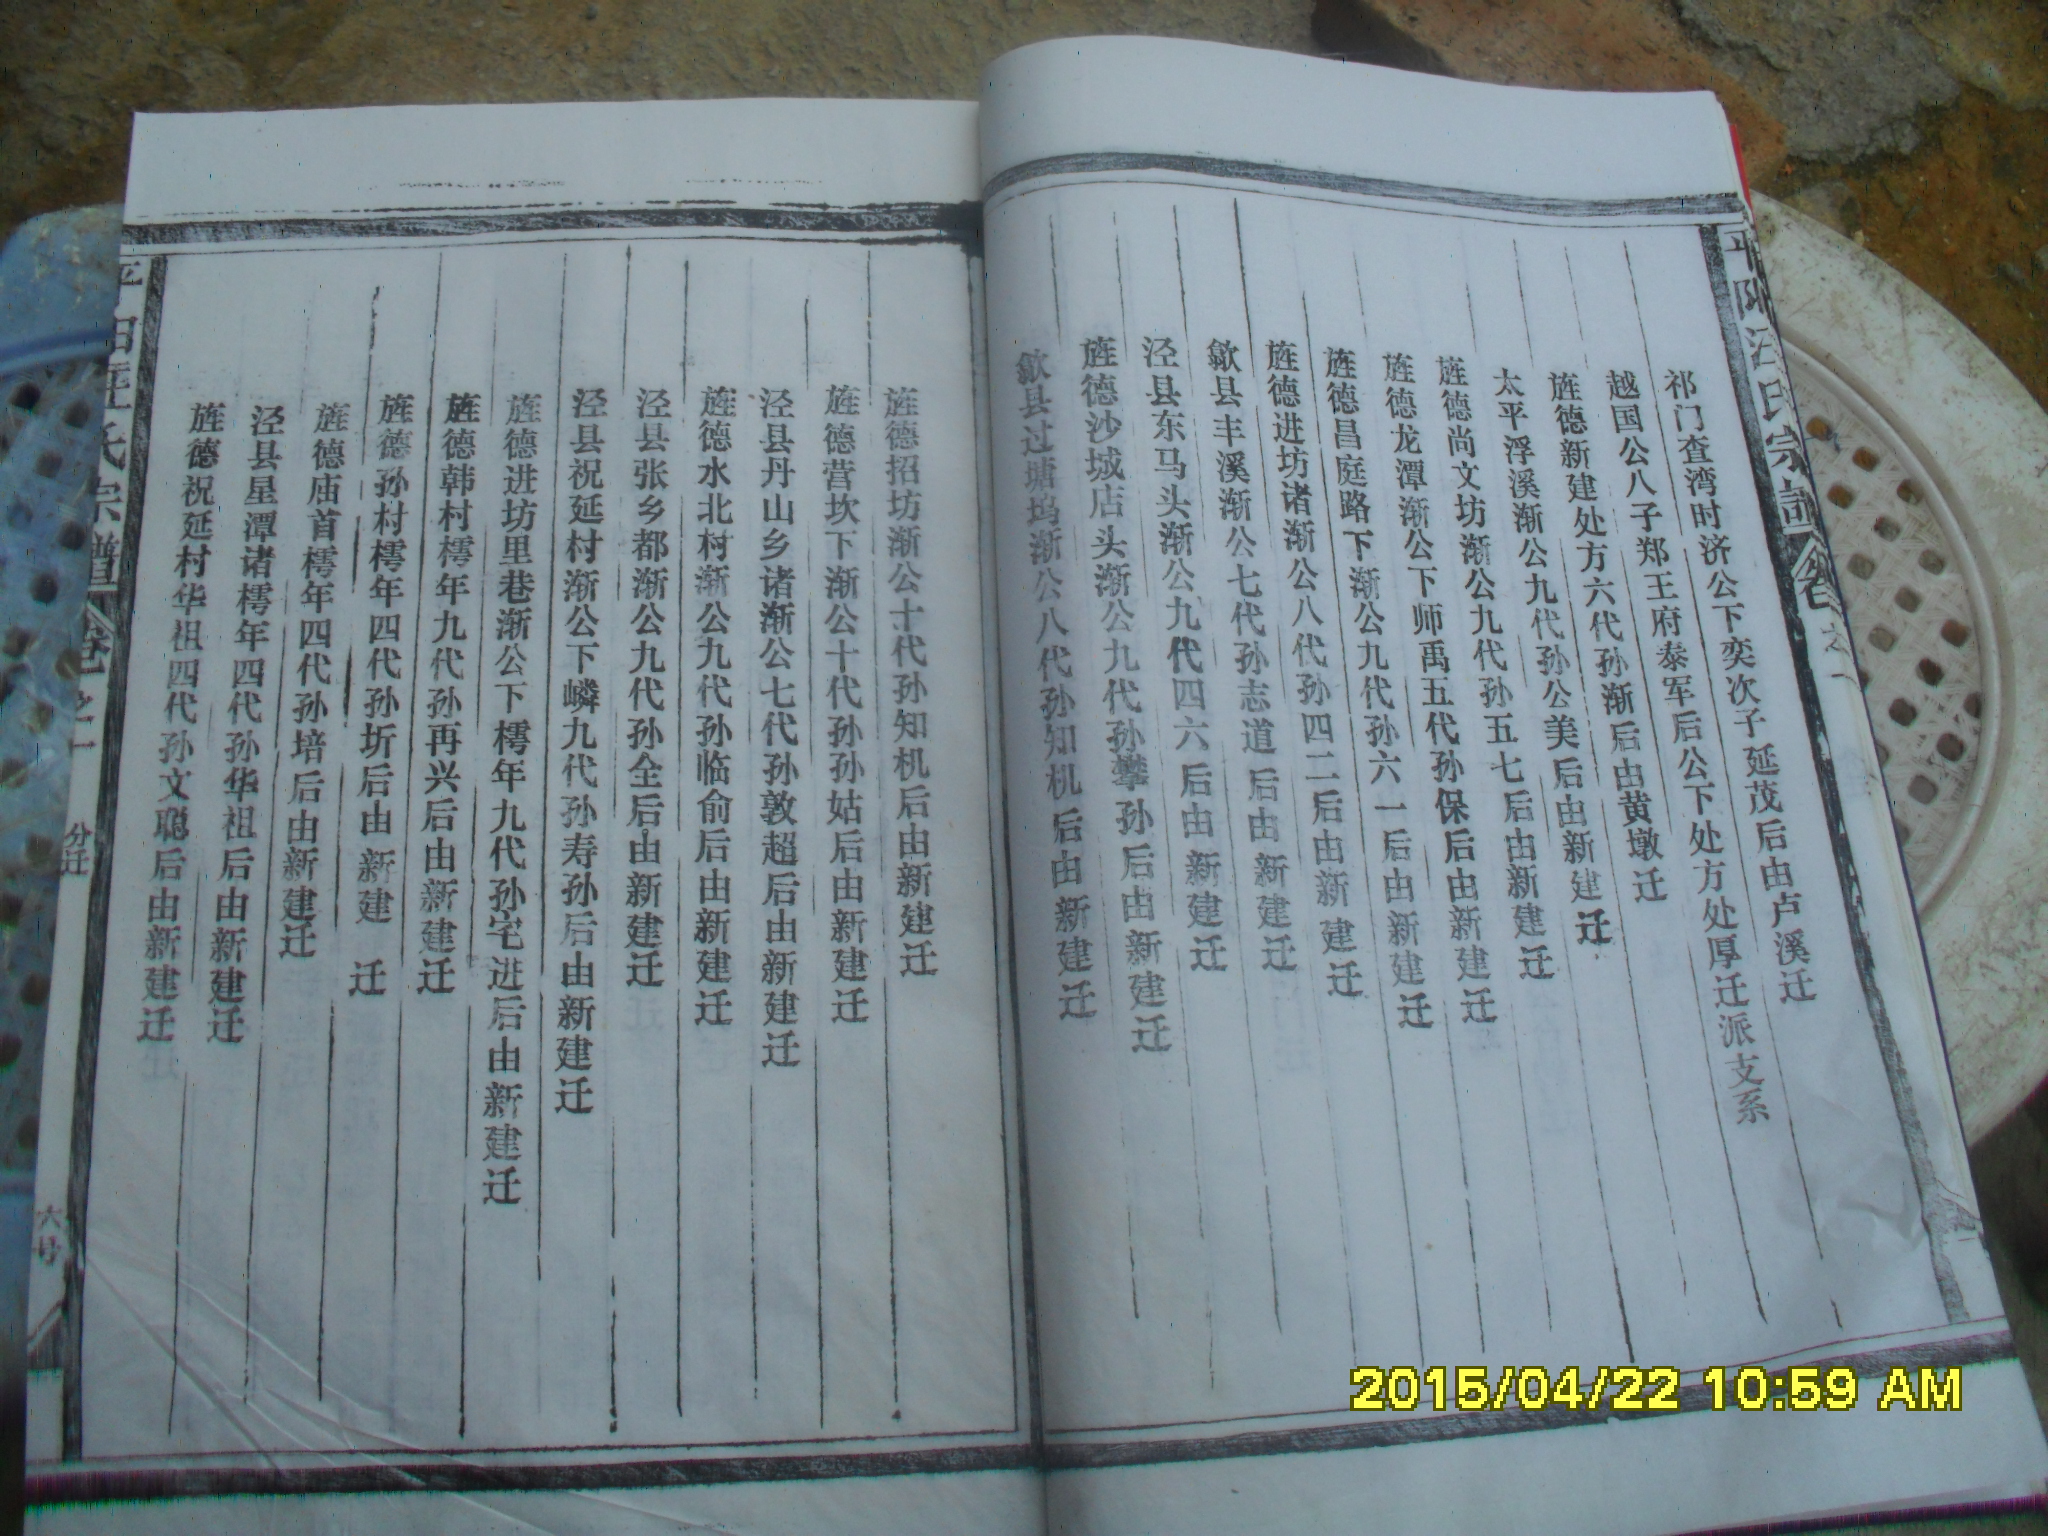 平阳汪氏宗谱 卷之一
祁门查湾时济公下奕次子延茂后由卢溪迁
越国公八子郑王府泰军后公下处方处厚迁派支系
旌德新建处方六代孙渐后由黄墩迁
太平浮溪渐公九代孙公美后由新建迁
旌德尚文坊渐公九代孙五七后由新建迁
旌德龙潭渐公下师禹五代孙保后由新建迁
旌德昌庭路下渐公九代孙六一后由新建迁
旌德进坊诸渐公八代孙四二后由新建迁
歙县丰溪渐公七代孙志道后由新建迁
泾县东马头渐公九代四六后由新建迁
旌德沙城店头渐公九代孙攀孙后由新建迁
歙县过塘坞渐公八代孙知机后由新建迁
旌德招坊渐公十代孙知机后由新建迁
旌德营坎下渐公十代孙孙姑后由新建迁
泾县丹山乡诸渐公七代孙敦超后由新建迁
旌德水北村渐公九代孙临俞后由新建迁
泾县张乡都渐公九代孙全后由新建迁
泾县祝延村渐公下嶙九代孙寿孙后由新建迁
旌德进坊里巷渐公下樗年九代孙宅进后由新建迁
旌德韩村樗年九代孙再兴后由新建迁
旌德孙村樗年四代孙圻后由新建迁
旌德庙首樗年四代孙培后由新建迁
泾县星潭诸樗年四代孙华祖后由新建迁
旌德祝延村华祖四代孙文聪后由新建迁
平阳汪氏宗谱 卷之一 分迁 六号
2015/04/22 10:59 AM